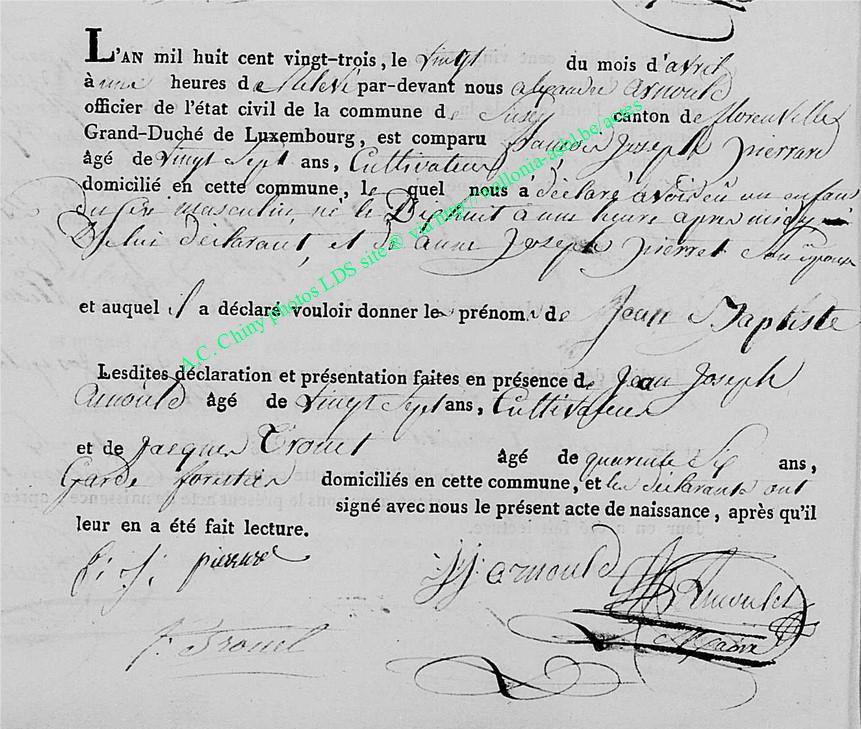 L'AN mil huit cent vingt-trois, le vingt du mois d'avril
à une heures de relevé par-devant nous alexandre Arnould
officier de l'état civil de la commune de Suxy canton de florenville
Grand-Duché de Luxembourg, est comparu françois Joseph pierrard
âgé de vingt Sept ans, Cultivateur
domicilié en cette commune, le quel nous a déclaré avoir eu un enfant
du sexe masculin, né le Dixhuit à une heure après midy
De lui déclarant, et de anne Joseph pierret Son épouse
et auquel il a déclaré vouloir donner les prénoms de Jean Baptiste
Lesdites déclaration et présentation faites en présence de Jean Joseph
Arnould âgé de vingt Sept ans, Cultivateur
et de Jacques Trouet âgé de quarente Six ans,
Garde forestier domiciliés en cette commune, et les déclarants ont
signé avec nous le présent acte de naissance, après qu'il
leur en a été fait lecture.
f: j: pierrard
J: J: arnould
Arnould
J. Trouet
A.C. Chiny photos LDS site ® via http://wallonia-asbl.be/actes